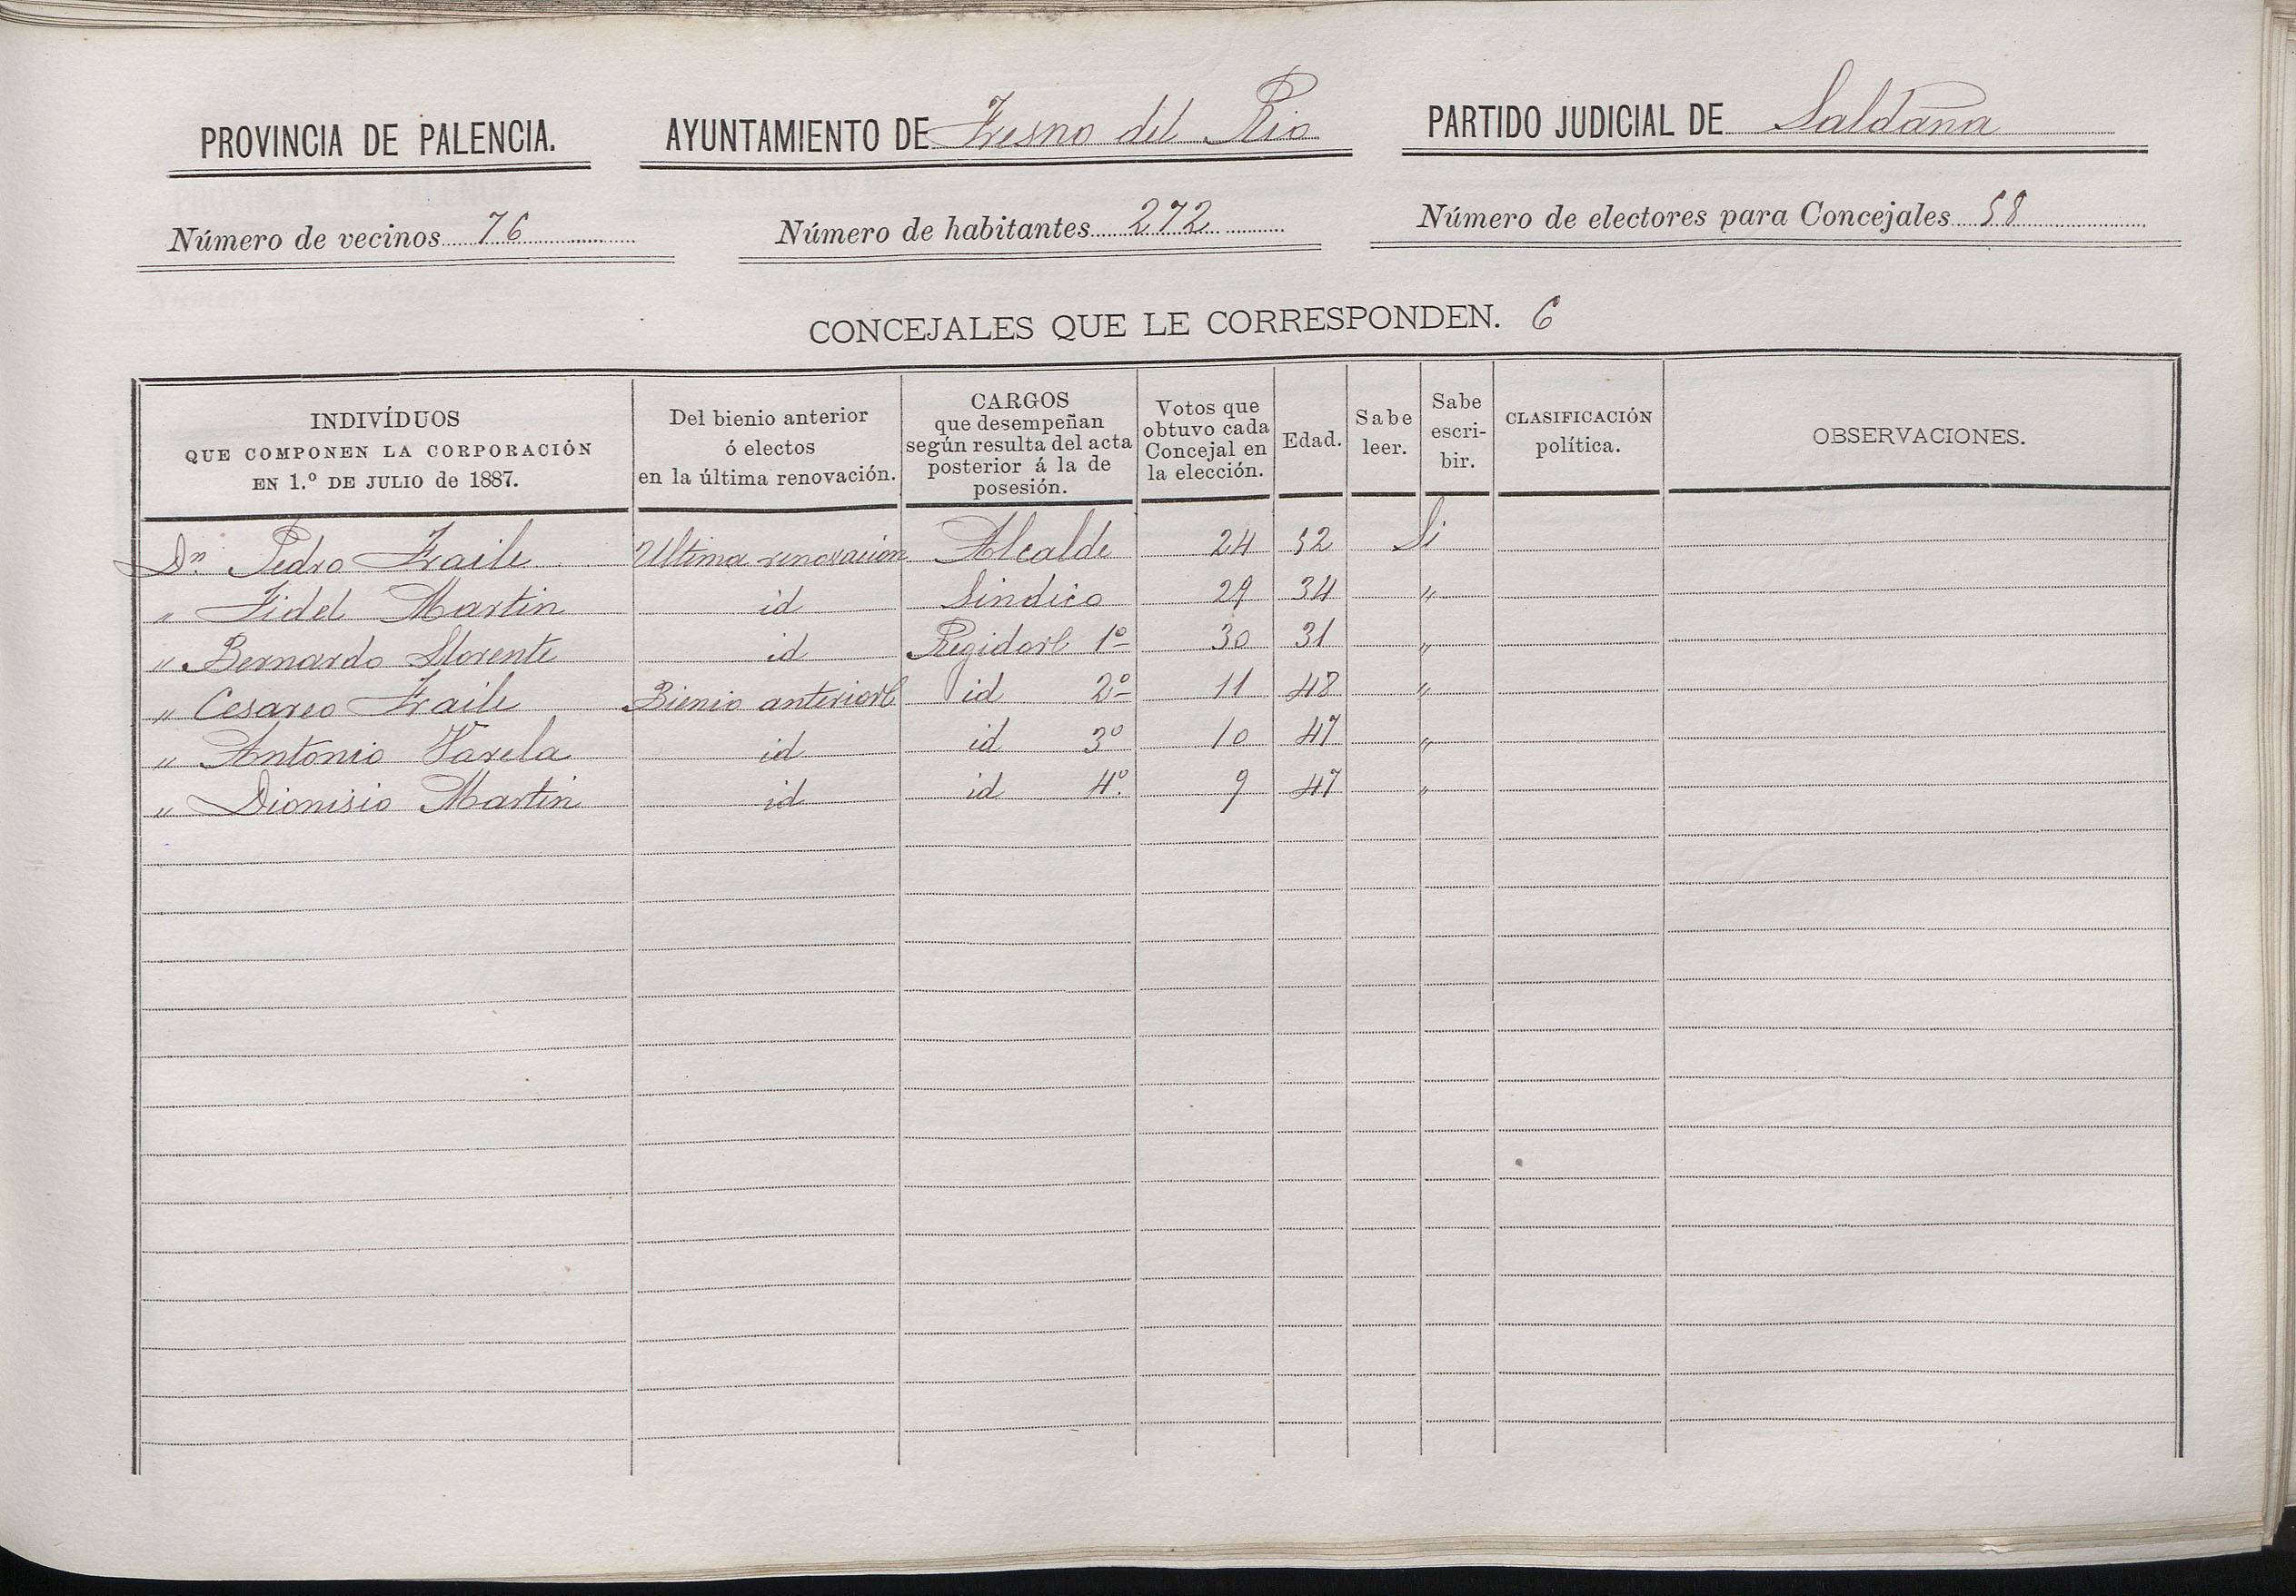 PROVINCIA DE PALENCIA. AYUNTAMIENTO DE Fresno del Rio PARTIDO JUDICIAL DE Saldaña
Número de vecinos 76 Número de habitantes 272 Número de electores para Concejales 58
CONCEJALES QUE LE CORRESPONDEN. 6
INDIVÍDUOS
QUE COMPONEN LA CORPORACIÓN
EN 1.º DE JULIO de 1887.
Del bienio anterior
ó electos
en la última renovación.
CARGOS
que desempeñan
según resulta del acta
posterior á la de
posesión.
Votos que
obtuvo cada
Concejal en
la elección.
Edad.
Sabe
leer.
Sabe
escri-
bir.
CLASIFICACIÓN
política.
OBSERVACIONES.
Dn. Pedro Fraile Ultima renovacion Alcalde 24 52 Si
" Fidel Martin id Sindico 29 34 "
" Bernardo Llorente id Regidor 1º 30 31 "
" Cesareo Fraile Bienio anterior id 2º 11 48 "
" Antonio Varela id id 3º 10 47 "
" Dionisio Martin id id 4º. 9 47 "